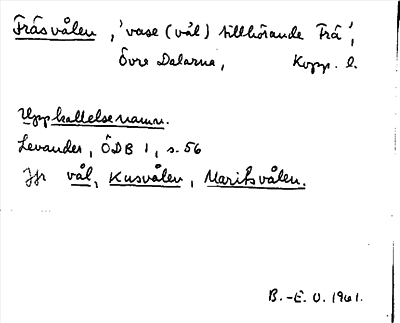 Fråsvålen, 'vase (vål) tillhörande Frå',
Övre Dalarna, Kopp. l.
Uppkallelsenamn.
Levander, ÖDB 1, s. 56
Jfr vål, Kusvålen, Maritsvålen.
B.-E. O. 1961.